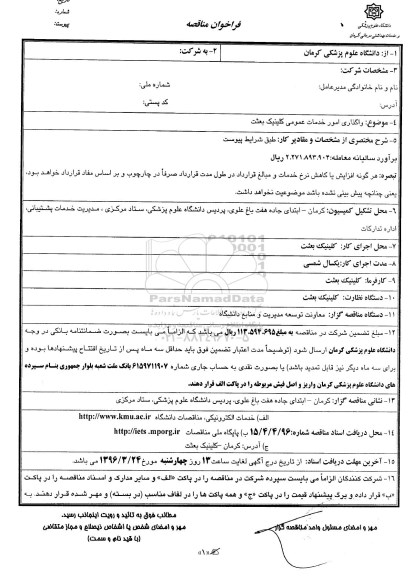 تاریخ:
شماره:
پیوست:
فراخوان مناقصه
دانشگاه علوم پزشکی
و خدمات بهداشتی درمانی کرمان
۱- از: دانشگاه علوم پزشکی کرمان
۲- به شرکت:
۳- مشخصات شرکت:
نام و نام خانوادگی مدیرعامل:
شماره ملی:
آدرس:
کد پستی:
۴- موضوع: واگذاری امور خدمات عمومی کلینیک بعثت
۵- شرح مختصری از مشخصات و مقادیر کار: طبق شرایط پیوست
برآورد سالیانه معامله: ۲.۲۷۱.۸۹۳.۹۰۲ ریال
تبصره: هر گونه افزایش یا کاهش نرخ خدمات و مبالغ قرارداد در طول مدت قرارداد صرفاً در چارچوب و بر اساس مفاد قرارداد خواهد بود،
یعنی چنانچه پیش بینی نشده باشد موضوعیت نخواهد داشت.
۶- محل تشکیل کمیسیون: کرمان – ابتدای جاده هفت باغ علوی، پردیس دانشگاه علوم پزشکی، ستاد مرکزی ، مدیریت خدمات پشتیبانی،
اداره تدارکات
۷- محل اجرای کار: کلینیک بعثت
۸- مدت اجرای کار: یکسال شمسی
۹- کارفرما: کلینیک بعثت
۱۰- دستگاه نظارت: کلینیک بعثت
۱۱- دستگاه مناقصه گزار: معاونت توسعه مدیریت و منابع دانشگاه
۱۲- مبلغ تضمین شرکت در مناقصه به مبلغ ۱۱۳.۵۹۴.۶۹۵ ریال می باشد که الزاماً می بایست بصورت ضمانتنامه بانکی در وجه
دانشگاه علوم پزشکی کرمان ارسال شود (توضیحاً مدت اعتبار تضمین فوق باید حداقل سه ماه پس از تاریخ افتتاح پیشنهادها بوده و
برای سه ماه دیگر نیز قابل تمدید باشد) یا بصورت نقدی به حساب جاری شماره ۶۱۵۹۷۱۱۹۰۷ بانک ملت شعبه بلوار جمهوری بنام سپرده
های دانشگاه علوم پزشکی کرمان واریز و اصل فیش مربوطه را در پاکت الف قرار دهند.
۱۳- نشانی مناقصه گزار: کرمان – ابتدای جاده هفت باغ علوی، پردیس دانشگاه علوم پزشکی، ستاد مرکزی
الف) خدمات الکترونیکی، مناقصات دانشگاه http://www.kmu.ac.ir
۱۴- محل دریافت اسناد مناقصه شماره: ۱۵/۴/۴/۹۶ ب) پایگاه ملی مناقصات http://iets.mporg.ir
ج) آدرس: کرمان – کلینیک بعثت
۱۵- آخرین مهلت دریافت اسناد: از تاریخ درج آگهی لغایت ساعت ۱۳ روز چهارشنبه مورخ ۱۳۹۶/۳/۲۴ می باشد
۱۶- شرکت کنندگان الزاماً می بایست سپرده شرکت در مناقصه را در پاکت «الف» و سایر مدارک و اسناد مناقصه را در پاکت
«ب» قرار داده و برگ پیشنهاد قیمت را در پاکت «ج» و همه پاکت ها را در لفاف مناسب (در بسته) و مهر شده قرار دهند به
مطالب فوق به تائید و رویت اینجانب رسید.
مهر و امضای مسئول واحد مناقصه گزار
مهر و امضای شخص یا اشخاص ذیصلاح و مجاز متقاضی
(با قید نام و سمت)
ParsNamadData